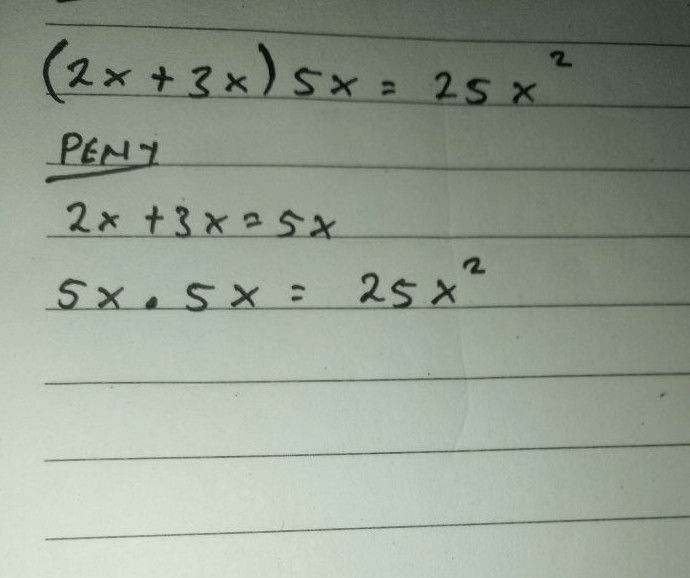 (2x + 3x) 5x = 25x²
PENY
2x + 3x = 5x
5x . 5x = 25x²